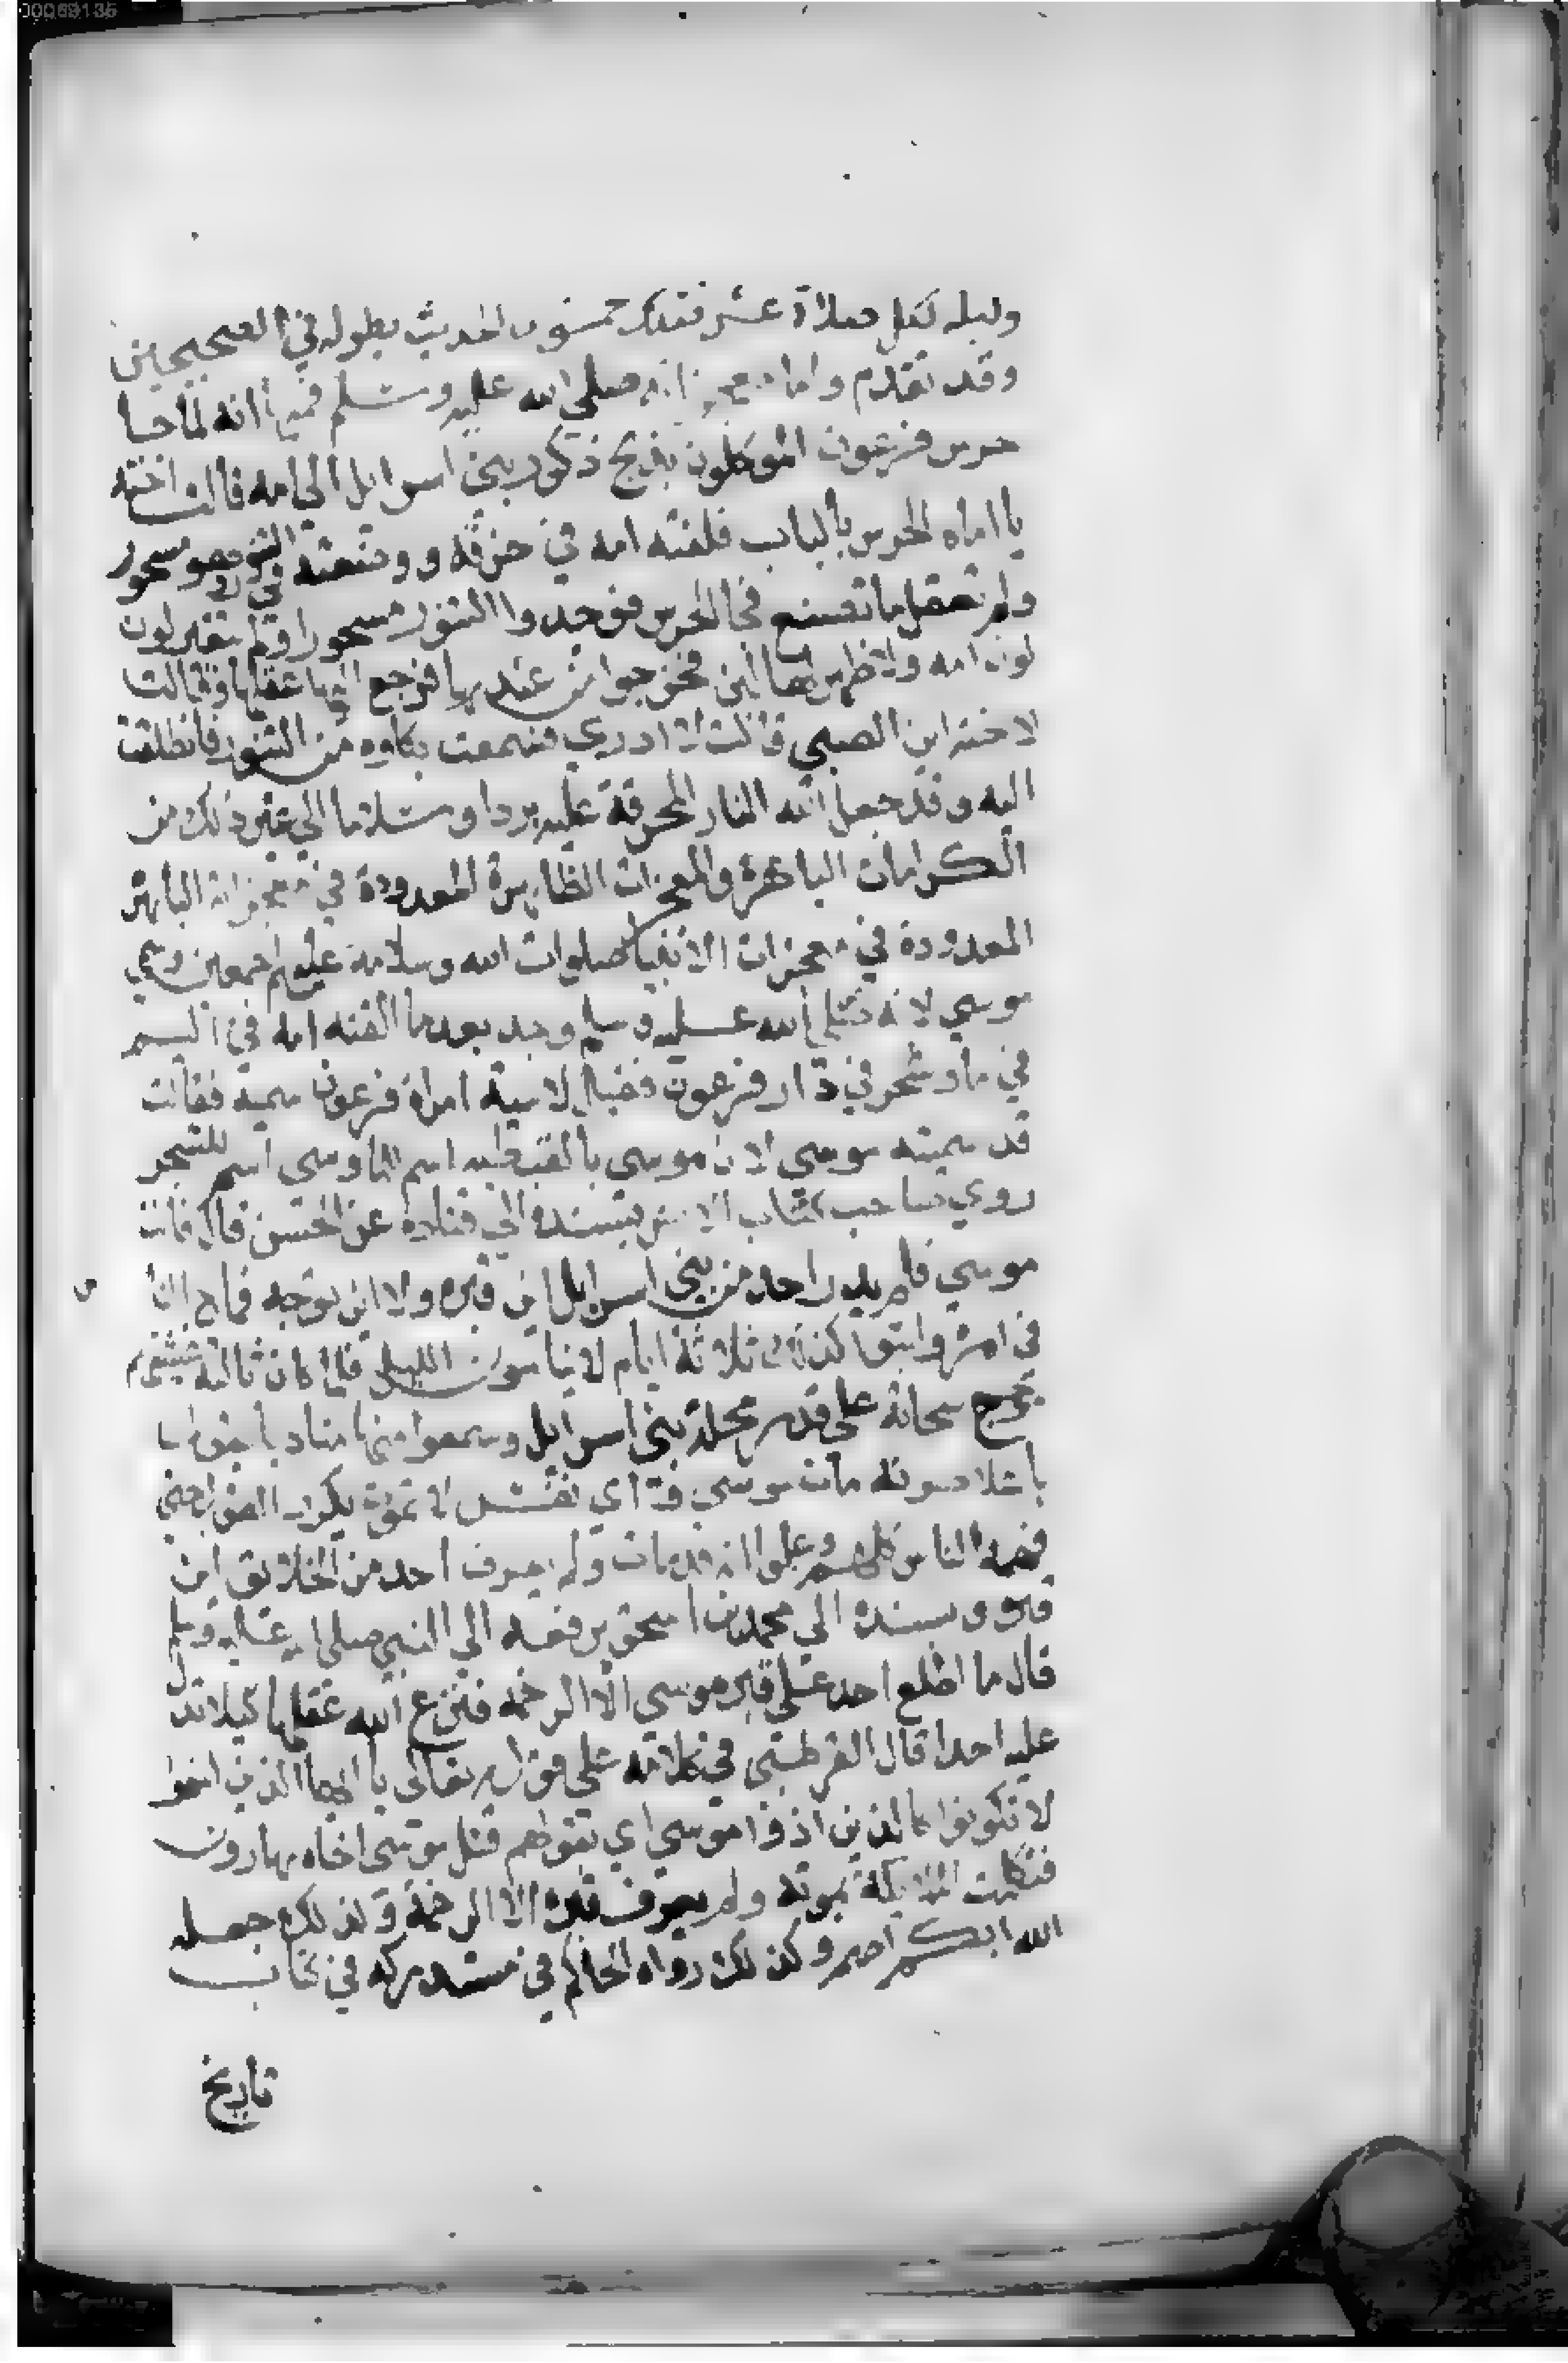 00069135
وليله لكل صلاة عشر فتلك خمسون الحديث بطوله في الصحيحين
وقد تقدم واما معجزاته صلي الله عليه وسلم فمنها انه لما جا
حرس فرعون الموكلون بذبح ذكور بني اسرايل الي امه قالت اخته
يا اماه الحرس بالباب فلفته امه في خرقة ووضعته في التنور وهو مسجور
ولم تعقل ما تصنع فجا الحرس فوجدوا التنور مسجورا ولم يتغير لون
لون امه ولا ظهر لها لبن فخرجوا من عندها فرجع اليها عقلها وقالت
لاخته اين الصبي قالت لا ادري فسمعت بكاوه من التنور فانطلقت
اليه وقد جعل الله النار المحرقة عليه بردا وسلاما الي غير ذلك من
الكرامات الباهرة والمعجزات الظاهرة المعدودة في معجزاته الباهرة
المعدودة في معجزات الانبيا صلوات الله وسلامه عليهم اجمعين وسمي
موسي لانه صلي الله عليه وسلم وجد بعدما القته امه في اليم
في ما وشجر في دار فرعون فقيل لاسية امراة فرعون سميه فقالت
قد سميته موسي لان موسي بالقبطيه اسم الما وسي اسم للشجر
روي صاحب كتاب بسنده الي قتادة عن الحسن قال مات
موسي فلم يدر احد من بني اسرايل اين قبره ولا اين توجه فماج الناس
في امره ولبثوا كذلك ثلاثة ايام لا ينامون الليل فلما كان ثالثة
سحابة علي قدر محلة بني اسرايل وسمعوا منها مناديا يقول
باعلا صوته مات موسي واي نفس لا تموت يكرر القول حتي
فهمه الناس كلهم وعلموا انه قد مات ولم يعرف احد من الخلائق اين
قبره وسنده الي محمد بن اسحق يرفعه الي النبي صلي الله عليه وسلم
قال ما اطلع احد علي قبر موسي الا الرخمة فنزع الله عقلها كيلا تدل
عليه احدا قال القرطبي في كلامه علي قوله تعالي يا ايها الذين امنوا
لا تكونوا كالذين اذوا موسي اي بقولهم قتل موسي اخاه هارون
فتكلمت الملايكة بموته ولم يعرف قبره الا الرخمة ولذلك جعله
الله ابكم اصم وكذلك رواه الحاكم في مستدركه في كتاب
تاريخ